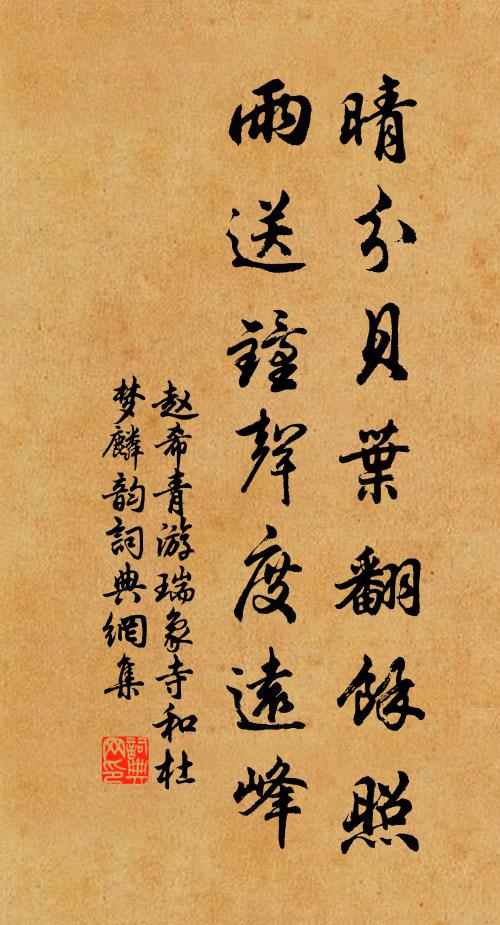 晴分貝葉翻餘照
雨送鐘聲度遠峰
赵希青游瑞象寺和杜
梦麟韵詞典網集
詞典
网印